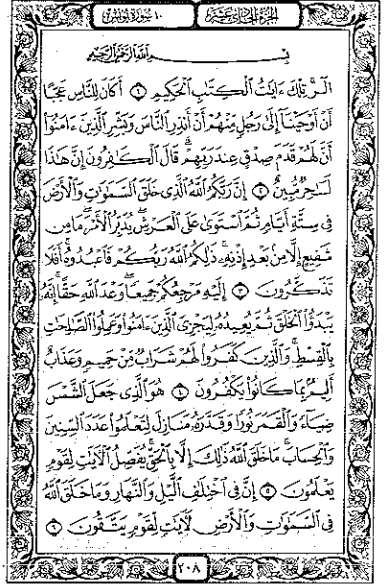 الجزء الحادي عشر ١٠ سورة يونس
بِسْمِ اللَّهِ الرَّحْمَٰنِ الرَّحِيمِ
الٓر تِلْكَ ءَايَٰتُ ٱلْكِتَٰبِ ٱلْحَكِيمِ ١ أَكَانَ لِلنَّاسِ عَجَبًا
أَنْ أَوْحَيْنَآ إِلَىٰ رَجُلٍ مِّنْهُمْ أَنْ أَنذِرِ ٱلنَّاسَ وَبَشِّرِ ٱلَّذِينَ ءَامَنُوٓا۟
أَنَّ لَهُمْ قَدَمَ صِدْقٍ عِندَ رَبِّهِمْ قَالَ ٱلْكَٰفِرُونَ إِنَّ هَٰذَا
لَسَٰحِرٌ مُّبِينٌ ٢ إِنَّ رَبَّكُمُ ٱللَّهُ ٱلَّذِى خَلَقَ ٱلسَّمَٰوَٰتِ وَٱلْأَرْضَ
فِى سِتَّةِ أَيَّامٍ ثُمَّ ٱسْتَوَىٰ عَلَى ٱلْعَرْشِ يُدَبِّرُ ٱلْأَمْرَ مَا مِن
شَفِيعٍ إِلَّا مِنۢ بَعْدِ إِذْنِهِۦ ذَٰلِكُمُ ٱللَّهُ رَبُّكُمْ فَٱعْبُدُوهُ أَفَلَا
تَذَكَّرُونَ ٣ إِلَيْهِ مَرْجِعُكُمْ جَمِيعًا وَعْدَ ٱللَّهِ حَقًّا إِنَّهُۥ
يَبْدَؤُا۟ ٱلْخَلْقَ ثُمَّ يُعِيدُهُۥ لِيَجْزِىَ ٱلَّذِينَ ءَامَنُوا۟ وَعَمِلُوا۟ ٱلصَّٰلِحَٰتِ
بِٱلْقِسْطِ وَٱلَّذِينَ كَفَرُوا۟ لَهُمْ شَرَابٌ مِّنْ حَمِيمٍ وَعَذَابٌ
أَلِيمٌۢ بِمَا كَانُوا۟ يَكْفُرُونَ ٤ هُوَ ٱلَّذِى جَعَلَ ٱلشَّمْسَ
ضِيَآءً وَٱلْقَمَرَ نُورًا وَقَدَّرَهُۥ مَنَازِلَ لِتَعْلَمُوا۟ عَدَدَ ٱلسِّنِينَ
وَٱلْحِسَابَ مَا خَلَقَ ٱللَّهُ ذَٰلِكَ إِلَّا بِٱلْحَقِّ يُفَصِّلُ ٱلْءَايَٰتِ لِقَوْمٍ
يَعْلَمُونَ ٥ إِنَّ فِى ٱخْتِلَٰفِ ٱلَّيْلِ وَٱلنَّهَارِ وَمَا خَلَقَ ٱللَّهُ
فِى ٱلسَّمَٰوَٰتِ وَٱلْأَرْضِ لَءَايَٰتٍ لِّقَوْمٍ يَتَّقُونَ ٦
٢٠٨